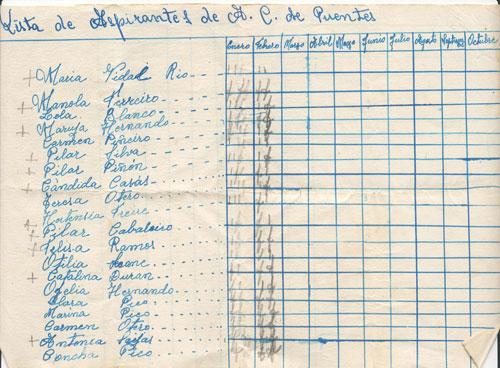 Lista de Aspirantes de A. C. de Puentes
Enero Febrero Marzo Abril Mayo Junio Julio Agosto Septbre Octubre
+ Maria Vidal Rio
+ Manola Ferreiro
Lola Blanco
+ Maruja Hernando
Carmen Piñeiro
+ Pilar Silva
+ Pilar Piñón
+ Cándida Casás
Teresa Otero
Hortensia Freire
+ Pilar Cabaleiro
+ Felisa Ramos
Otilia
+ Catalina Duran
Ofelia Hernando
Clara Pico
Marina Pico
Carmen Otero
+ Antonia Seijas
Concha Pico